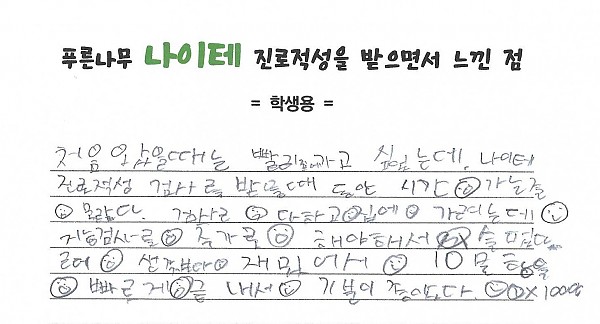 푸른나무 나이테 진로적성을 받으면서 느낀 점
= 학생용 =
처음 왔을때는 빨리집에가고 싶었는데, 나이테
진로적성 검사를 받을때 동안 시간 가는줄
몰랐다. 검사를 다하고 집에 가려는데
지능검사를 추가로 해야해서 슬펐다.
생각보다 재밌어서 10문항을
빠르게 끝내서 기분이 좋았다. X100